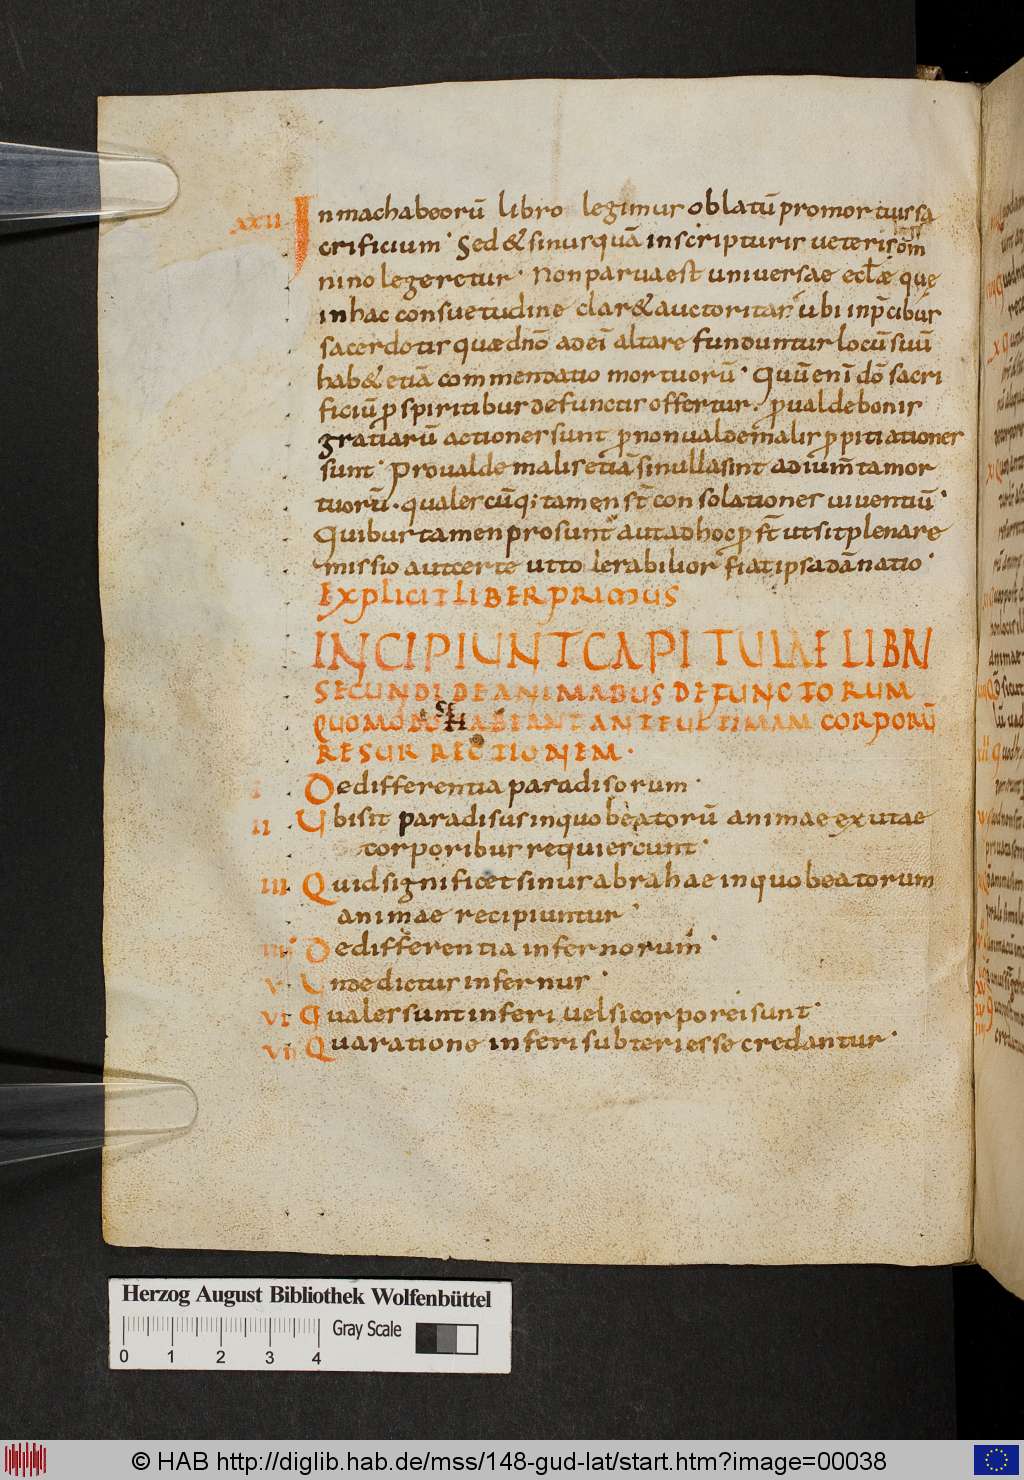 XXII In machabeorū libro legimus oblatū promortuis sa
crificium. Sed & sinusquā inscripturis ueteris om̄
nino legeretur. Non parua est uniuersae eccl̄ae que
inhac consuetudine clar& auctoritas ubi inp̄cibus
sacerdotis quae dn̄o ad ei altare funduntur locū suū
hab& etiā commendatio mortuorū. Quū enī dō sacri
ficiū p spiritibus defunctis offertur. p ualde bonis
gratiarū actiones sunt p non ualde malis ppitiationes
sunt. Pro ualde malis etiā sinulla sint adium̄ta mor
tuorū. qualescūq; tamen st̄ consolationes uiuentiū.
Quibus tamen prosunt aut ad hoc p st̄ ut sit plenare
missio aut certe utto lerabilior fiat ipsa dānatio.
EXPLICIT LIBER PRIMUS
INCIPIUNT CAPITULAE LIBRI
SECUNDI DE ANIMABUS DEFUNCTORUM
QUOMODO SE HABEANT ANTE ULTIMAM CORPORŪ
RESURRECTIONEM.
I De differentia paradisorum.
II Ubi sit paradisus in quo beatorū animae exutae
corporibus requiescunt.
III Quid significet sinus abrahae in quo beatorum
animae recipiuntur
IIII De differentia infernorum.
V Unde dictus infernus.
VI Quales sunt inferi uel si corporei sunt.
VII Qua ratione inferi sub teri esse credantur.
Herzog August Bibliothek Wolfenbüttel
0 1 2 3 4 Gray Scale
© HAB http://diglib.hab.de/mss/148-gud-lat/start.htm?image=00038